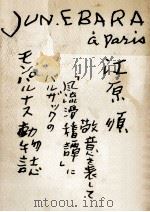 JUN.EBARA
à Paris
江原順
敬意を表して
バルザックの
「風流滑稽譚」に
モンパルナス動物誌